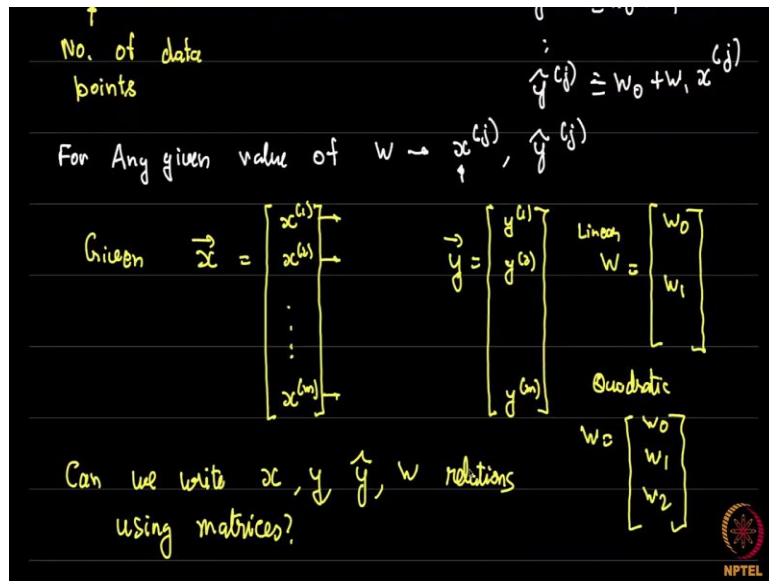 No. of data
points
:
ŷ^(j) ≅ w₀ + w₁ x^(j)
For Any given value of W → x^(j), ŷ^(j)
Given x⃗ = [ x^(1) x^(2) ⋮ x^(m) ] y⃗ = [ y^(1) y^(2) y^(m) ] Linear W = [ w₀ w₁ ]
Quadratic
W = [ w₀ w₁ w₂ ]
Can we write x, y, ŷ, w relations
using matrices?
NPTEL